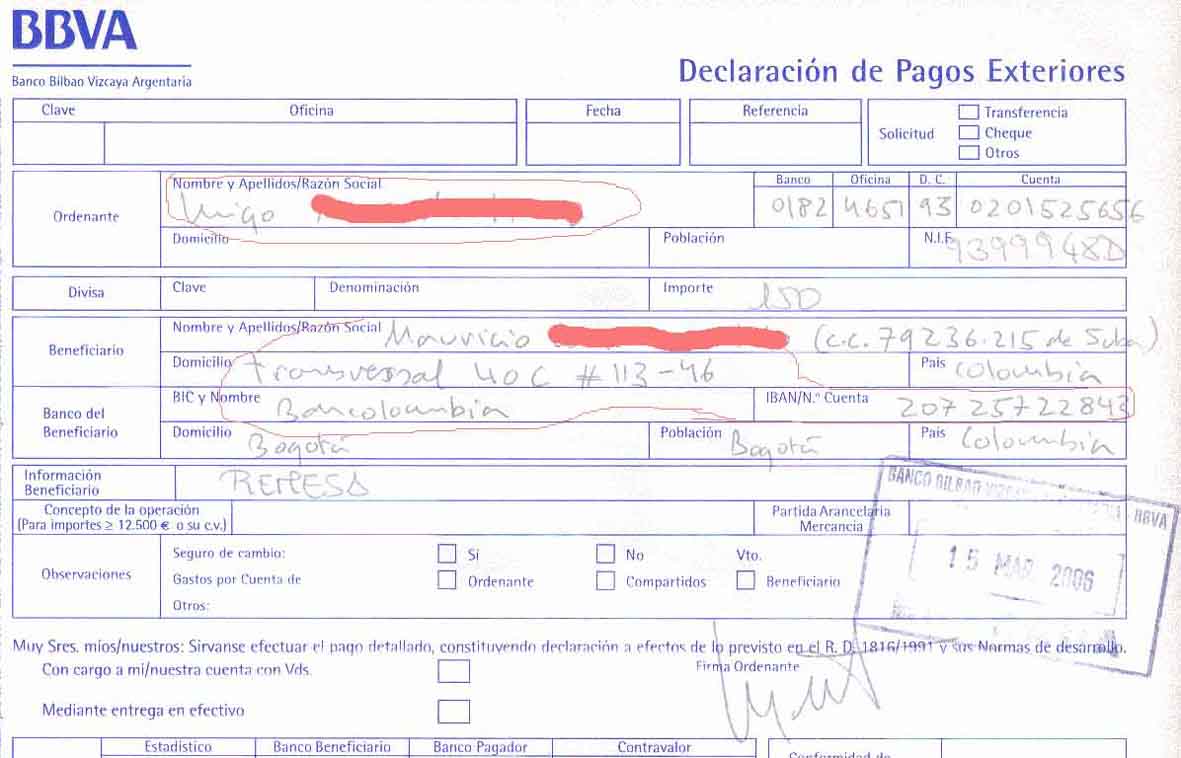 BBVA
Banco Bilbao Vizcaya Argentaria
Declaración de Pagos Exteriores
Clave Oficina Fecha Referencia
Solicitud
Transferencia
Cheque
Otros
Ordenante
Nombre y Apellidos/Razón Social
Banco Oficina D. C. Cuenta
0182 4651 93 0201525656
Domicilio Población N.I.F.
93999948D
Divisa Clave Denominación Importe 150
Beneficiario
Nombre y Apellidos/Razón Social Mauricio (c.c. 79236.215 de Suba)
Domicilio Transversal 40C #113-46 País Colombia
Banco del Beneficiario
BIC y Nombre Bancolombia IBAN/N.º Cuenta 20725722843
Domicilio Bogotá Población Bogotá País Colombia
Información Beneficiario REMESA
BANCO BILBAO BBVA
Concepto de la operación
(Para importes ≥ 12.500 € o su c.v.)
Partida Arancelaria
Mercancia
15 MAR 2006
Observaciones
Seguro de cambio: Sí No Vto.
Gastos por Cuenta de Ordenante Compartidos Beneficiario
Otros:
Muy Sres. míos/nuestros: Sírvanse efectuar el pago detallado, constituyendo declaración a efectos de lo previsto en el R. D. 1816/1991 y sus Normas de desarrollo.
Con cargo a mi/nuestra cuenta con Vds.
Firma Ordenante
Mediante entrega en efectivo
Estadístico Banco Beneficiario Banco Pagador Contravalor
Conformidad de